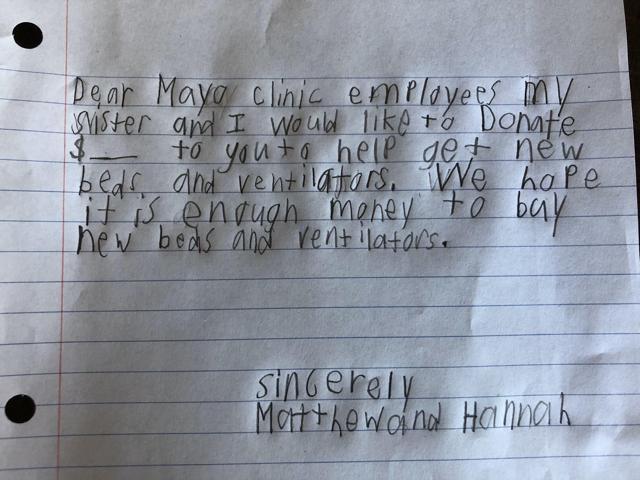 Dear Mayo clinic employees my
sister and I would like to Donate
$___ to you to help get new
beds. and ventilators. We hope
it is enough money to buy
new beds and ventilators.
sincerely
Matthew and Hannah